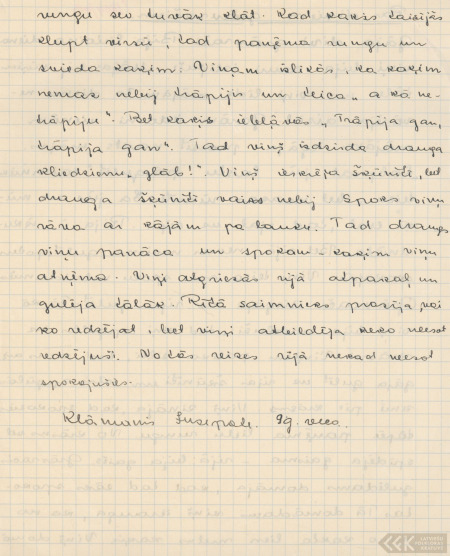 rungu sev tuvāk klāt. Kad kaķis taisījās
klupt virsū, tad paņēma rungu un
svieda kaķim. Viņam izlikās, ka kaķim
nemaz nebij trāpījis un teica „a kā ne-
trāpīju“. Bet kaķis ieķēķāvās „Trāpīja gan,
trāpīja gan“. Tad viņš izdzirda drauga
kliedzienu „glāb!“. Viņš ieskrēja šķūnītī, bet
drauga šķūnītī vairs nebij. Spoks viņu
rāva aiz kājām pa lauku. Tad draugs
viņu panāca un spokam - kaķim viņu
atņēma. Viņi atgriezās rijā atpakaļ un
gulēja tālāk. Rītā saimnieks prasīja, vai
ko redzējat, bet viņi atbildēja neko neesot
redzējuši. No tās reizes rijā nekad neesot
spokojušs.
Klāmanis 9g. vecs.
LATVIEŠU
FOLKLORAS
KRĀTUVE